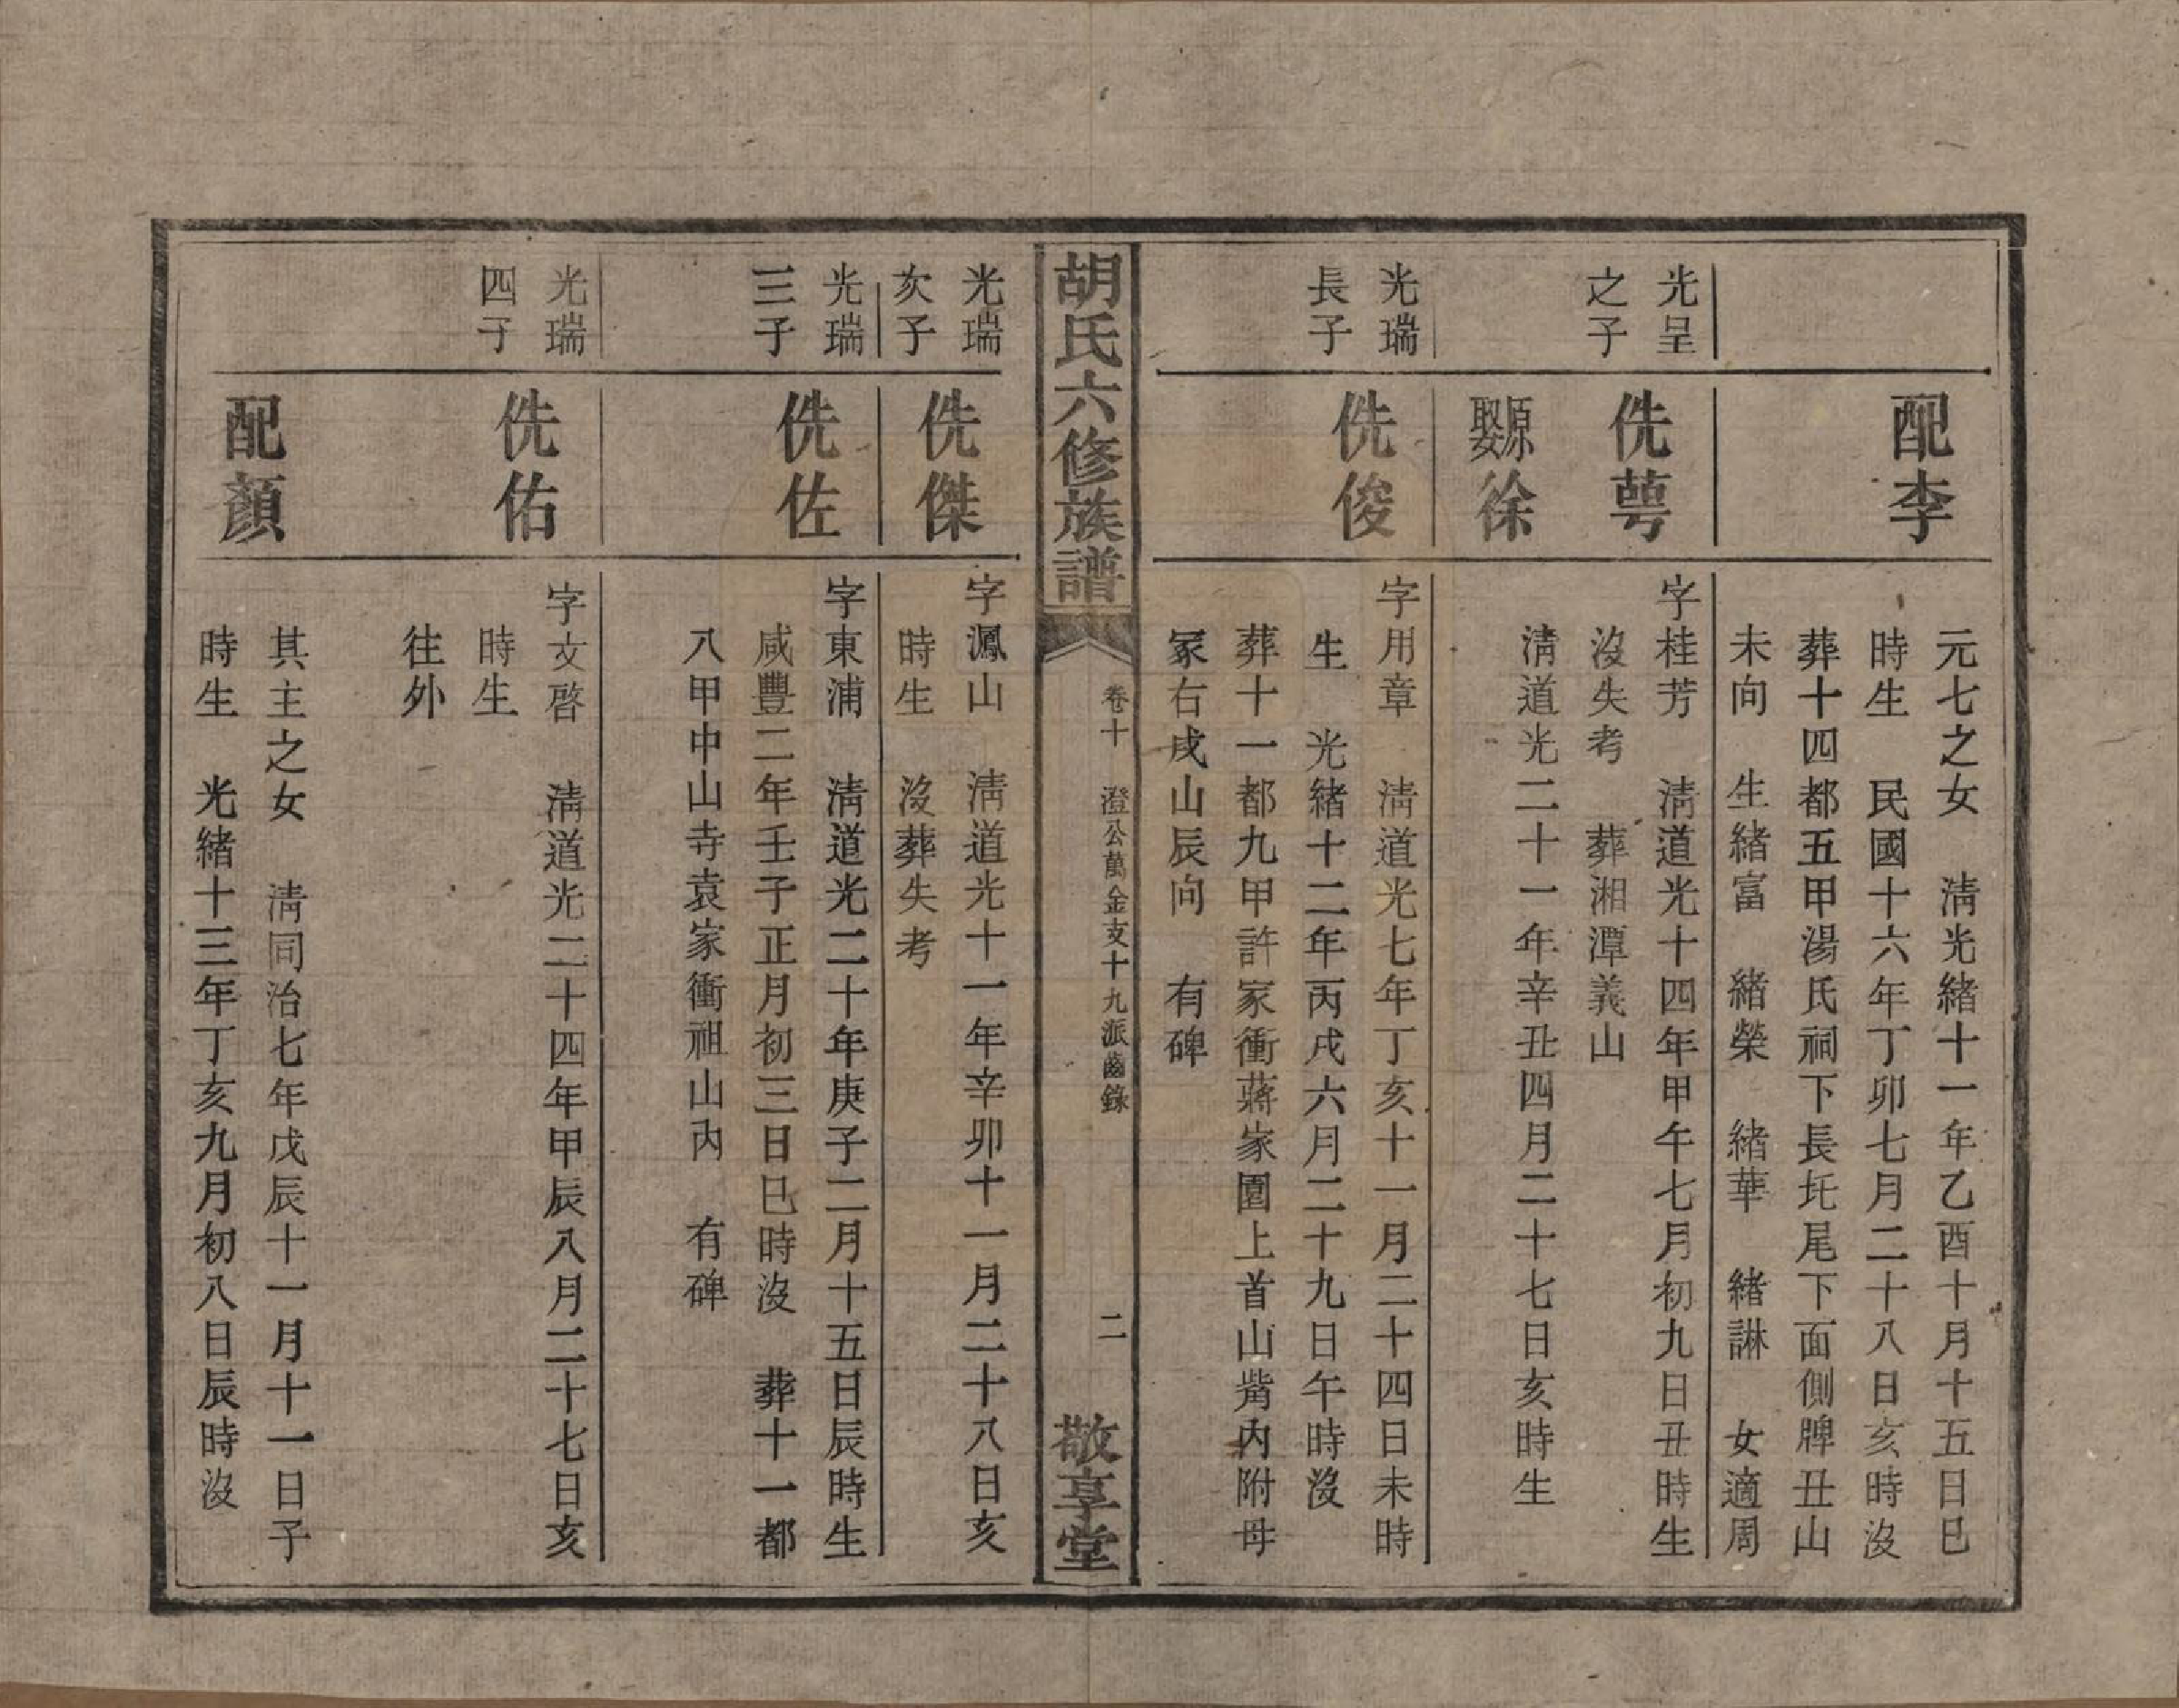 配李
元七之女　淸光緒十一年乙酉十月十五日巳
時生　民國十六年丁卯七月二十八日亥時沒
葬十四都五甲湯氏祠下長圫尾下面側牌丑山
未向　生緒富　緒榮　緒華　緒諃　女適周
光呈
之子
侁萼
字桂芳　淸道光十四年甲午七月初九日丑時生
沒失考　葬湘潭義山
原娶徐
淸道光二十一年辛丑四月二十七日亥時生
光瑞
長子
侁俊
字用章　淸道光七年丁亥十一月二十四日未時
生　光緒十二年丙戌六月二十九日午時沒
葬十一都九甲許家衝蔣家園上首山觜內附母
冢右戌山辰向　有碑
胡氏六修族譜
卷十　澄公萬金支十九派齒錄
二
敬享堂
光瑞
次子
侁傑
字鳳山　淸道光十一年辛卯十一月二十八日亥
時生　沒葬失考
光瑞
三子
侁佐
字東浦　淸道光二十年庚子二月十五日辰時生
咸豐二年壬子正月初三日巳時沒　葬十一都
八甲中山寺袁家衝祖山內　有碑
光瑞
四子
侁佑
字文啓　淸道光二十四年甲辰八月二十七日亥
時生
往外
配顏
其主之女　淸同治七年戊辰十一月十一日子
時生　光緒十三年丁亥九月初八日辰時沒